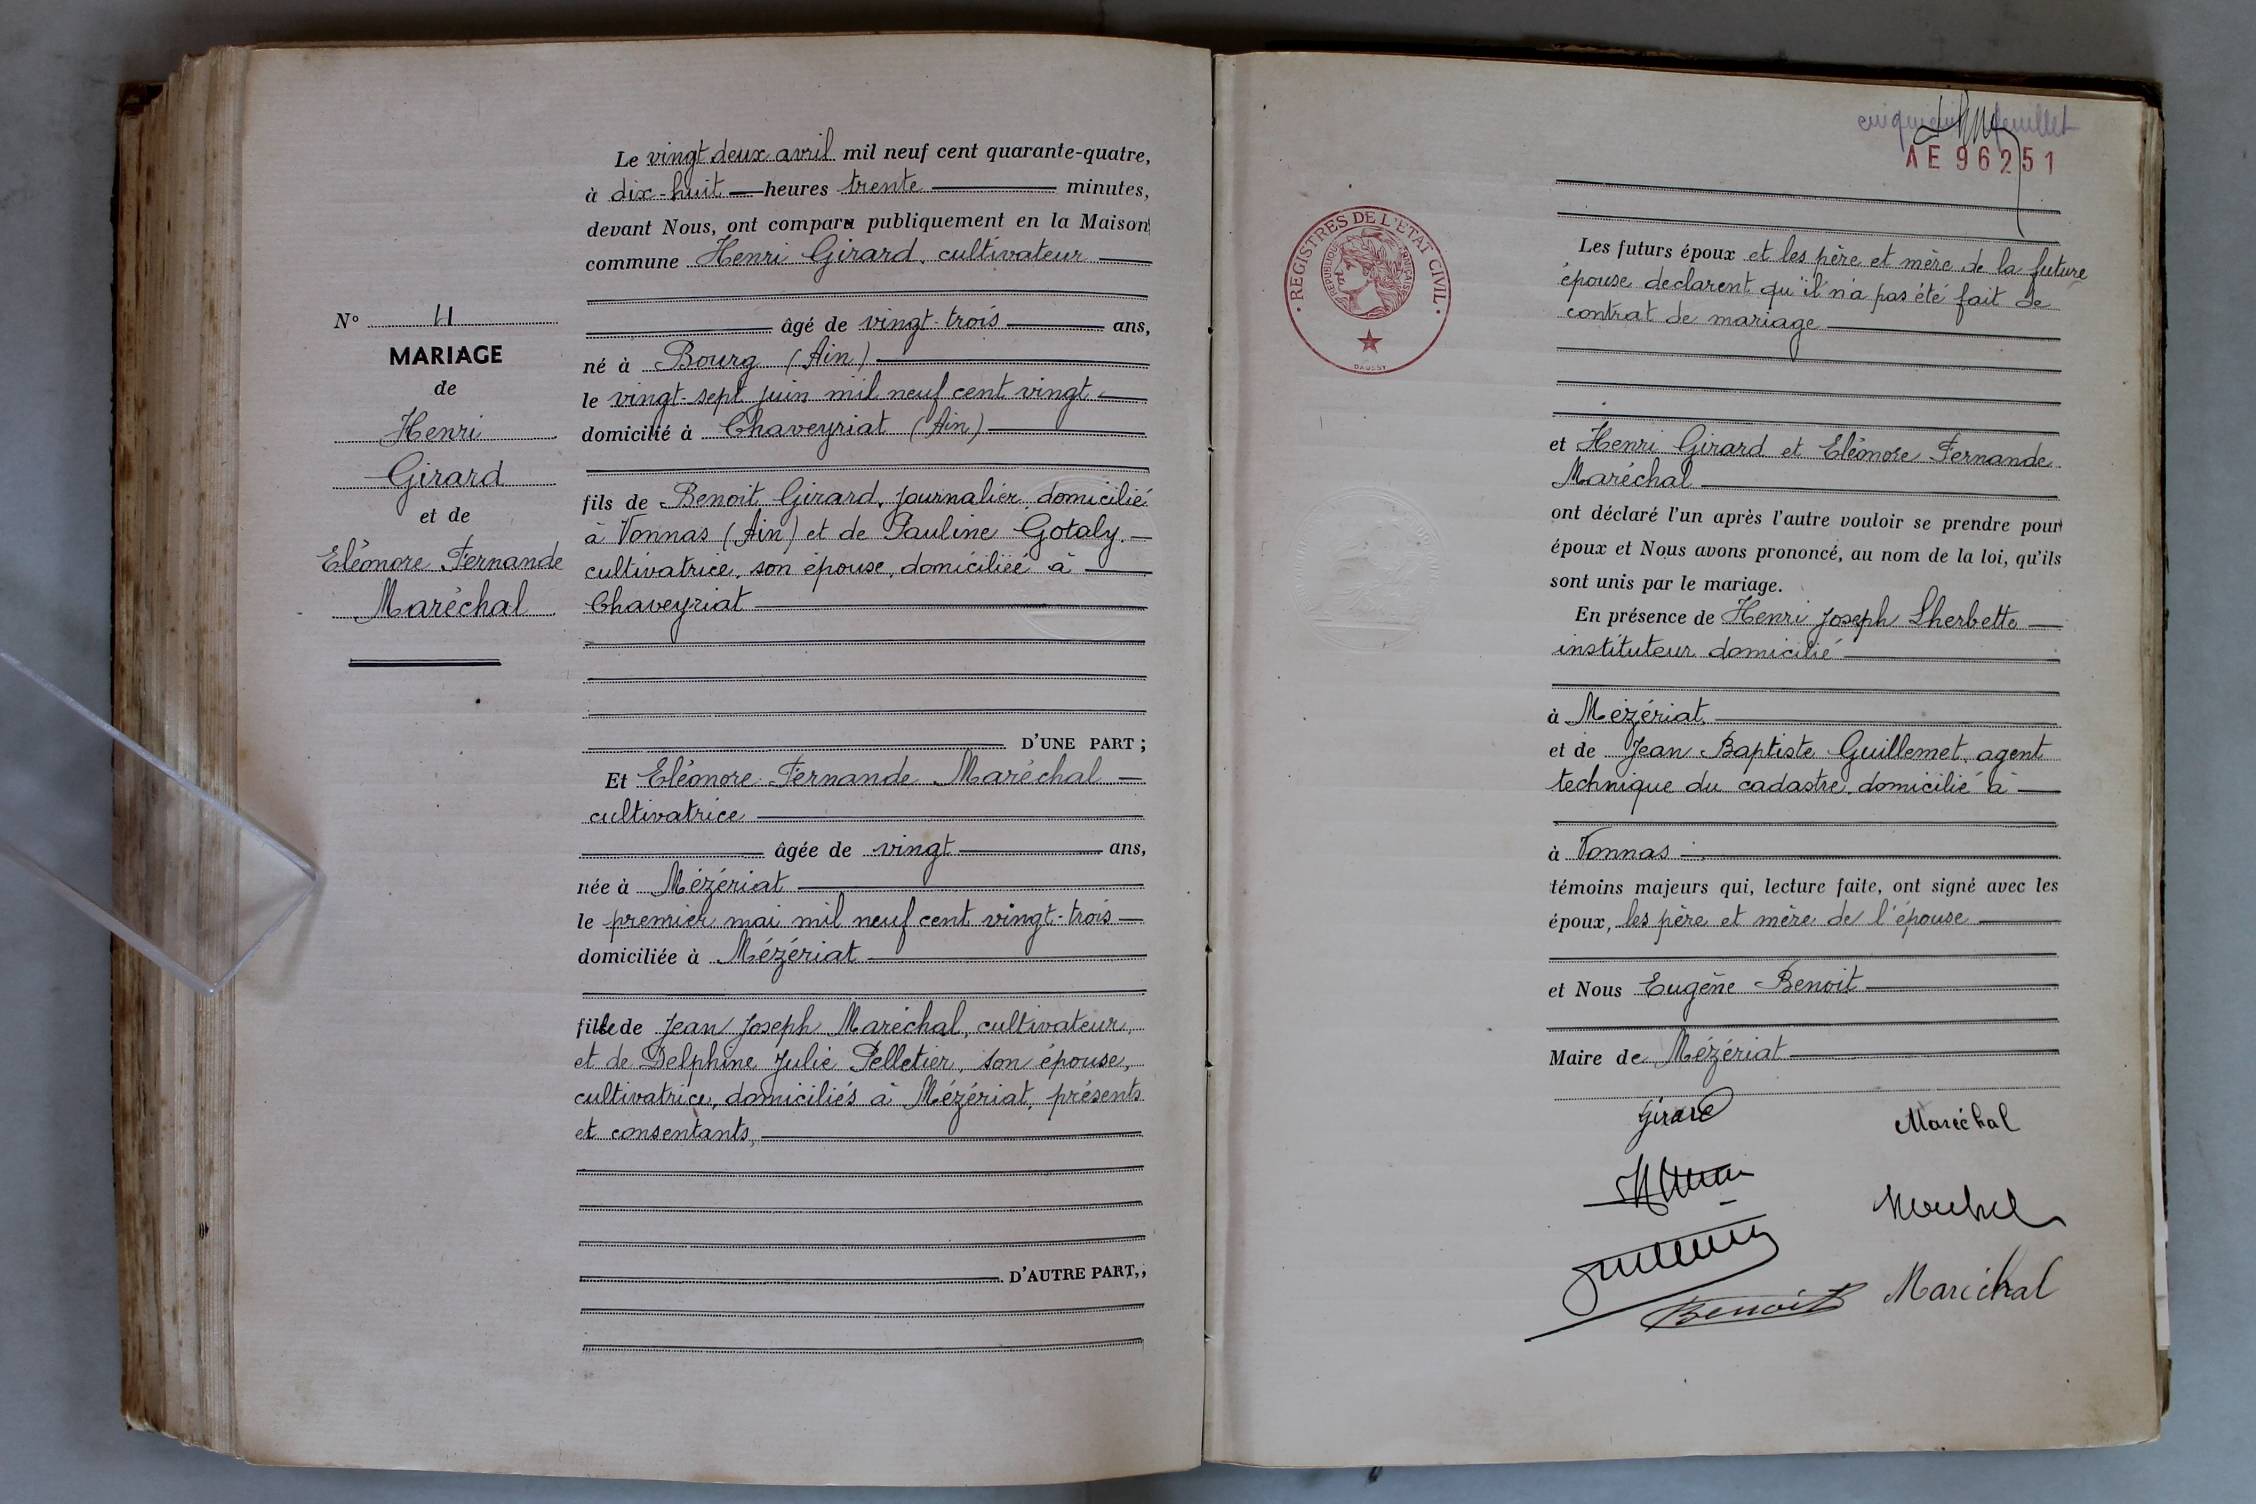 Le vingt deux avril mil neuf cent quarante-quatre,
à dix-huit heures trente minutes,
devant Nous, ont comparu publiquement en la Maison
commune Henri Girard, cultivateur
âgé de vingt-trois ans,
né à Bourg (Ain)
le vingt-sept juin mil neuf cent vingt
domicilié à Chaveyriat (Ain)
fils de Benoit Girard, journalier, domicilié
à Vonnas (Ain) et de Pauline Gotaly.
cultivatrice, son épouse, domiciliée à
Chaveyriat
D'UNE PART ;
Et Eléonore Fernande Maréchal
cultivatrice
âgée de vingt ans,
née à Mézériat
le premier mai mil neuf cent vingt-trois
domiciliée à Mézériat
fille de Jean Joseph Maréchal, cultivateur,
et de Delphine Julie Pelletier, son épouse,
cultivatrice, domiciliés à Mézériat, présents
et consentants,
D'AUTRE PART,,
No 4
MARIAGE
de
Henri
Girard
et de
Eléonore Fernande
Maréchal
feuillet
AE 96251
REGISTRES DE L'ETAT CIVIL
REPUBLIQUE FRANÇAISE
Les futurs époux et les père et mère de la future
épouse declarent qu'il n'a pas été fait de
contrat de mariage
et Henri Girard et Eléonore Fernande
Maréchal
ont déclaré l'un après l'autre vouloir se prendre pour
époux et Nous avons prononcé, au nom de la loi, qu'ils
sont unis par le mariage.
En présence de Henri Joseph Lherbette
instituteur domicilié
à Mézériat
et de Jean Baptiste Guillemet, agent
technique du cadastre, domicilié à
à Vonnas
témoins majeurs qui, lecture faite, ont signé avec les
époux, les père et mère de l'épouse
et Nous Eugène Benoit
Maire de Mézériat
Girard
Maréchal
Benoit
Maréchal